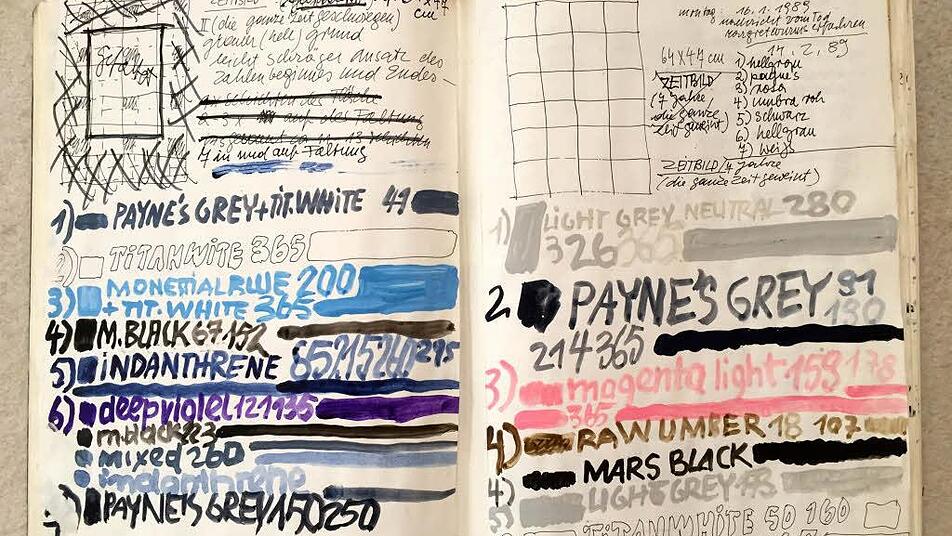 II (die ganze Zeit geschwiegen)
grauer (hell) grund
leicht schräger ansatz des
zahlenbeginnes und Endes
7 in und auf Faltung
1) PAYNE'S GREY + TIT. WHITE 49
2) TITANWITE 365
3) MONETIALBLUE 200
+ TIT. WHITE 365
4) M. BLACK 67 152
5) INDANTHRENE
6) deepviolet 121 135
m.black 23
mixed 260
indanthrene
7) PAYNE'S GREY 150 250
montag: 16.1.1989
nachricht vom Tod
erfahren
14.2.89
64x47 cm
1) hellgrau
ZEITBILD
2) payne's
(7 Jahre,
3) rosa
die ganze
4) umbra roh
Zeit geweint)
5) schwarz
6) hellgrau
7) weiß
ZEITBILD / 7 Jahre
(die ganze Zeit geweint)
1) LIGHT GREY NEUTRAL 280
326 365
2. PAYNE'S GREY 91
130
214 365
3) magenta light 159 178
365
4) RAW UMBER 18 107
MARS BLACK
4) LIGHT GREY 173
5) TITANWHITE 50 160